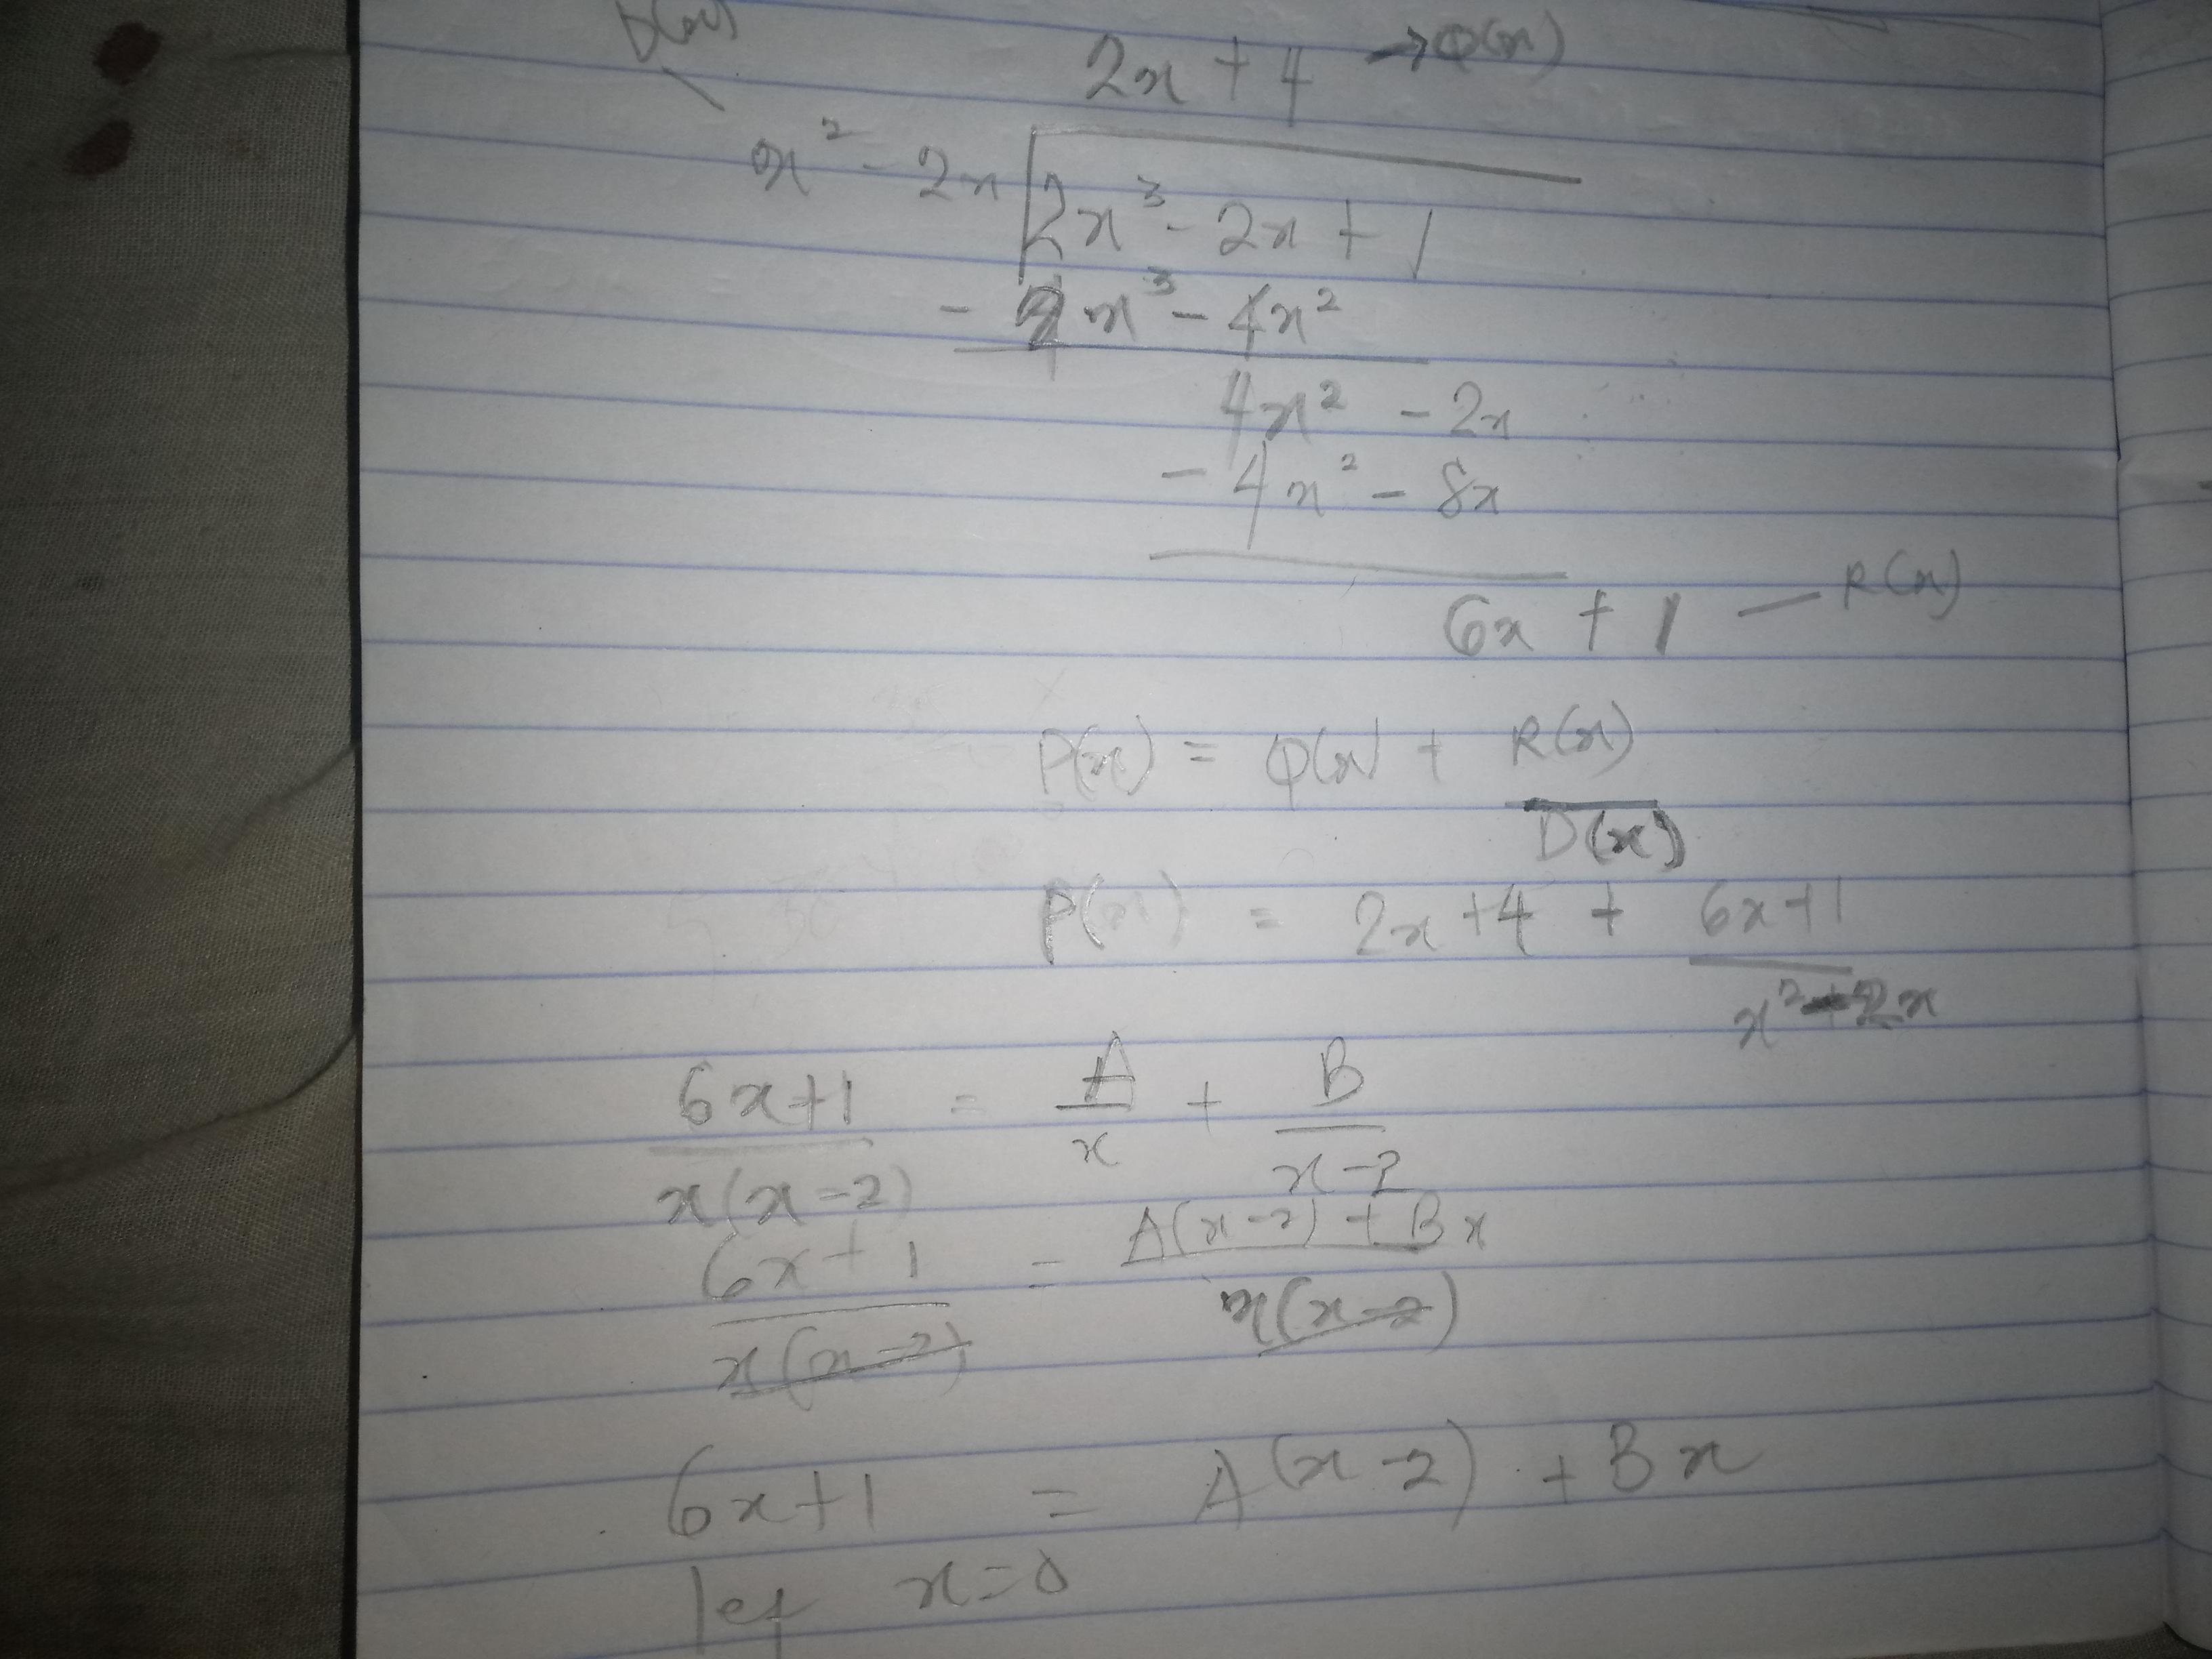 D(x)
2x + 4 → Q(x)
x² - 2x
2x³ - 2x + 1
- 2x³ - 4x²
4x² - 2x
- 4x² - 8x
6x + 1 — R(x)
P(x) = Q(x) + R(x)
D(x)
P(x) = 2x + 4 + 6x+1
x² - 2x
6x+1 = A + B
x(x-2) x x-2
6x+1 = A(x-2) + Bx
x(x-2) x(x-2)
6x+1 = A(x-2) + Bx
let x=0